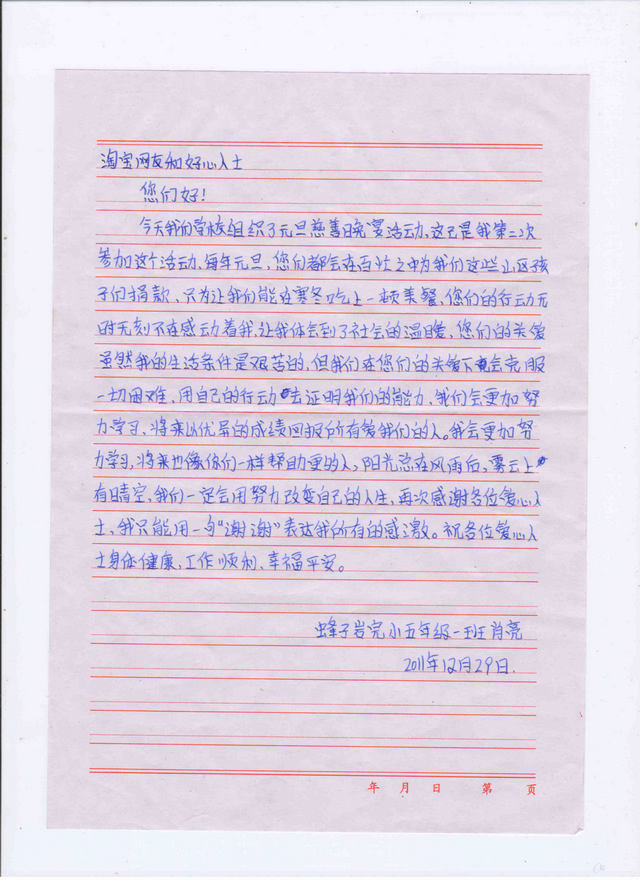 淘宝网友和好心人士
您们好!
今天我们学校组织了元旦慈善晚宴活动,这已是我第二次
参加这个活动,每年元旦,您们都会在百忙之中为我们这些山区孩
子们捐款、只为让我们能在寒冬吃上一顿美餐,您们的行动无
时无刻不在感动着我,让我体会到了社会的温暖、您们的关爱
虽然我的生活条件是艰苦的,但我们在您们的关爱下会克服
一切困难,用自己的行动去证明我们的能力,我们会更加努
力学习,将来以优异的成绩回报所有爱我们的人。我会更加努
力学习,将来也像你们一样帮助更的人,阳光总在风雨后,雾云上
有日晴空,我们一定会用努力改变自己的人生,再次感谢各位爱心人
士,我只能用一句“谢谢”表达我所有的感激。祝各位爱心人
士身体健康,工作顺利、幸福平安。
蜂子岩完小五年级一班肖亮
2011年12月29日.
年 月 日 第 页